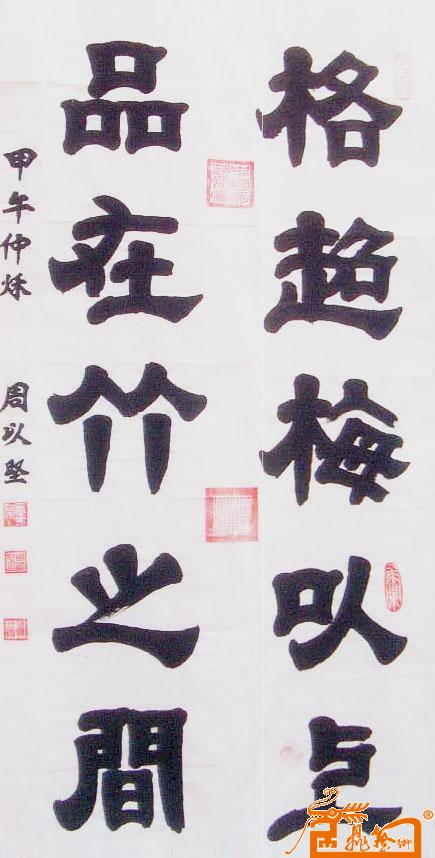 格超梅以上
品在竹之間
甲午仲秋
周以堅
藝術
®